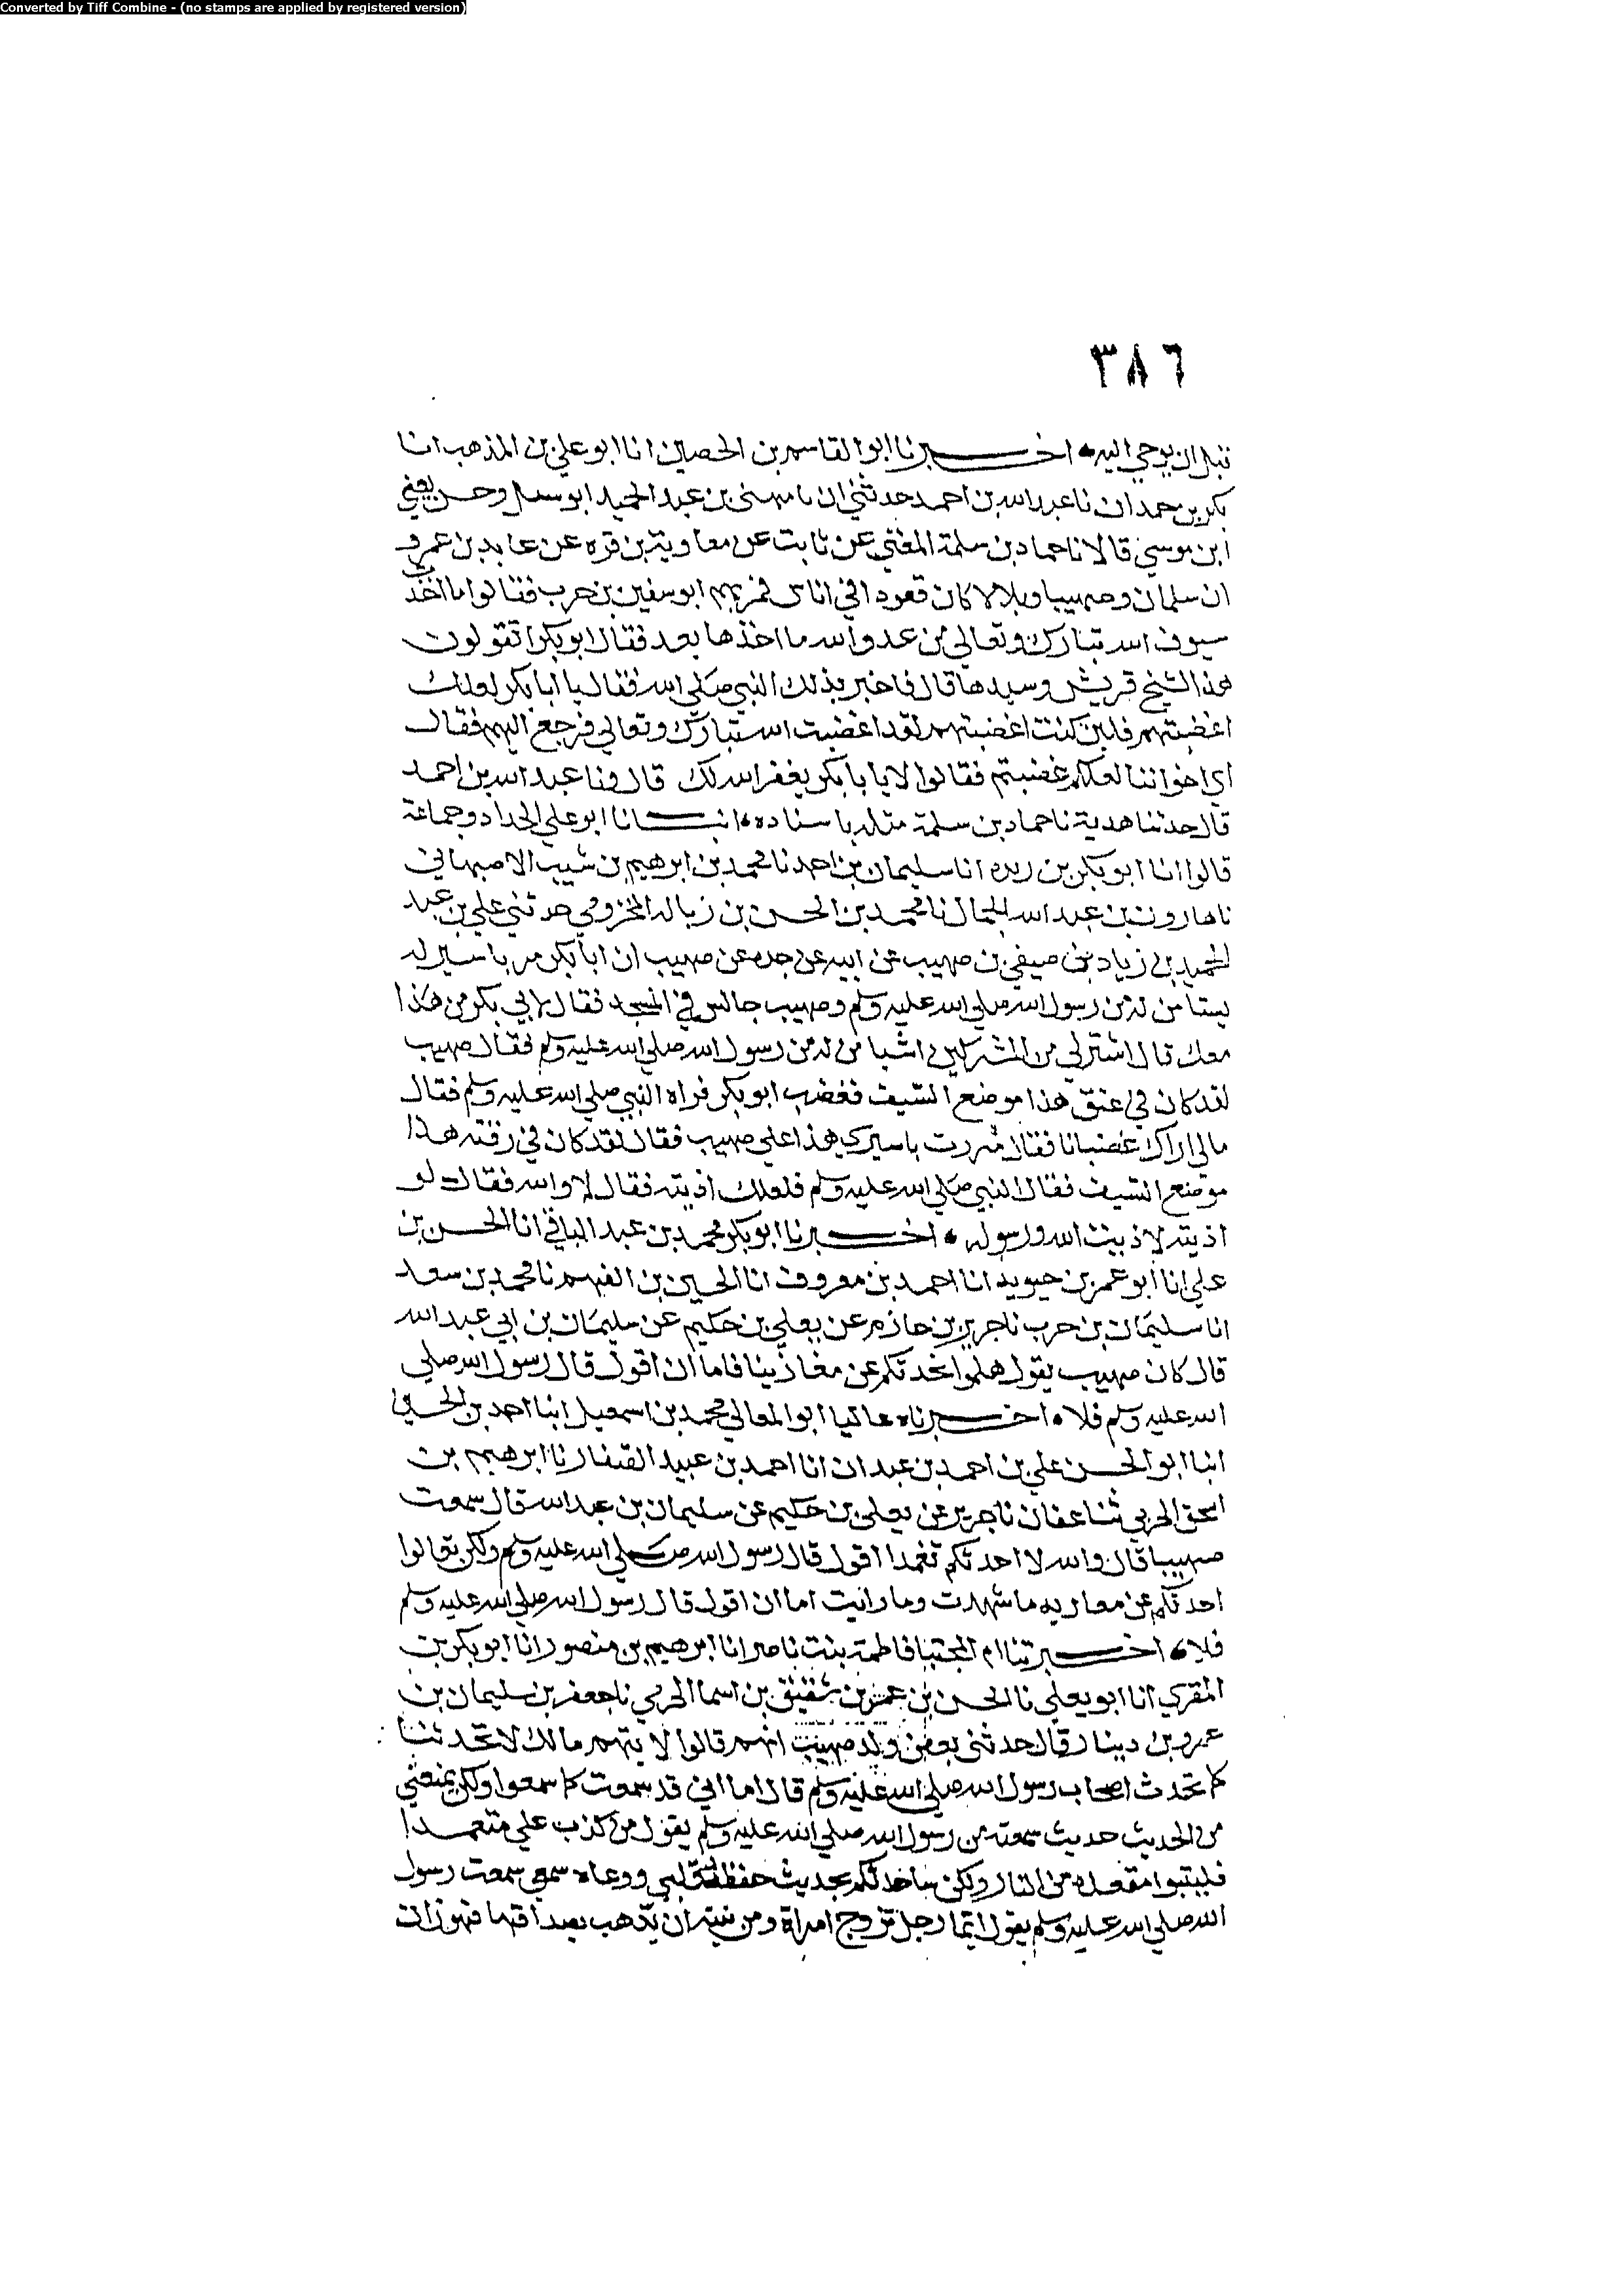 Converted by Tiff Combine - (no stamps are applied by registered version)
٣٨٦
قبل ان يوحي اليه اخبرنا ابو القاسم بن الحصين انا ابو علي بن المذهب انا
بكر بن حمدان نا عبد الله بن احمد حدثني نا مهنى بن عبد الحميد ابو سبل وحسن يعني
ابن موسي قالا نا حماد بن سلمة المعني عن ثابت عن معاوية بن قره عن عايد بن عمرو
ان سلمان وصهيبا وبلالا كان قعودا في اناس فمر بهم ابو سفين بن حرب فقالوا ما اخذت
سيوف الله تبارك وتعالي من عدو الله ما اخذها بعد فقال ابو بكر اتقولون
هذا لشيخ قريش وسيدها قال فاخبر بذلك النبي صلي الله فقال يا ابا بكر لعلك
اغضبتهم فلين كنت اغضبتهم لقد اغضبت الله تبارك وتعالي فرجع اليهم فقال
اي اخواننا لعلكم غضبتم فقالوا لا يا با بكر يغفر الله لك قال ونا عبد الله بن احمد
قال حدثنا هدبة نا حماد بن سلمة مثله باسناده انبانا ابو علي الحداد وجماعة
قالوا انا ابو بكر بن ريده انا سليمان بن احمد نا محمد بن ابرهيم بن شبيب الاصبهاني
نا هارون بن عبد الله الحمال نا محمد بن الحسن بن زباله المخزومي حدثني علي بن عبد
الحميد بن زياد بن صيفي بن صهيب عن ابيه عن جده عن صهيب ان ابا بكر مر باسير له
يستامن له من رسول الله صلي الله عليه وسلم وصهيب جالس في المسجد فقال لابي بكر من هذا
معك قال اسير لي من المشركين استامن له من رسول الله صلي الله عليه وسلم فقال صهيب
لقد كان في عنق هذا موضع السيف فغضب ابو بكر فراه النبي صلي الله عليه وسلم فقال
مالي اراك غضبانا فقال مررت باسيري هذا علي صهيب فقال لقد كان في رقبته هذا
موضع السيف فقال النبي صلي الله عليه وسلم فلعلك اذيته فقال لا والله فقال لو
اذيته لاذيت الله ورسوله اخبرنا ابو بكر محمد بن عبد الباقي انا الحسن بن
علي انا ابو عمر بن حيويه انا احمد بن معروف انا الحسين بن الفهم نا محمد بن سعد
انا سليمان بن حرب نا جرير بن حازم عن يعلي بن حكيم عن سليمان بن ابي عبد الله
قال كان صهيب يقول هلموا نحدثكم عن مغازينا فاما ان اقول قال رسول الله صلي
الله عليه وسلم فلا اخبرناه عاليا ابو المعالي محمد بن اسمعيل ابنا احمد بن الحسين
ابنا ابو الحسن علي بن احمد بن عبدان انا احمد بن عبيد الصفار نا ابرهيم بن
اسحق الحربي ثنا عفان نا جرير عن يعلى بن حكيم عن سليمان بن عبد الله قال سمعت
صهيبا قال والله لا احدثكم تعمدا اقول قال رسول الله صلي الله عليه وسلم ولكن تعالوا
احدثكم عن مغازيه ما شهدت وما رايت اما ان اقول قال رسول الله صلي الله عليه وسلم
فلا اخبرتنا ام المجتبا فاطمة بنت ناصر انا ابرهيم بن منصور انا ابو بكر بن
المقري انا ابو يعلي نا الحسن بن عمر بن شقيق بن اسما الجرمي نا جعفر بن سليمان بن
عمرو بن دينار قال حدثني بعض ولد صهيب انهم قالوا لابيهم مالك لا تحدثنا
كما تحدث اصحاب رسول الله صلي الله عليه وسلم قال اما اني قد سمعت كما سمعوا ولكن يمنعني
من الحديث حديث سمعته من رسول الله صلي الله عليه وسلم يقول من كذب علي متعمدا
فليتبوا مقعده من النار ولكن ساحدثكم بحديث حفظه قلبي ووعاه سمعي سمعت رسول
الله صلي الله عليه وسلم يقول ايما رجل تزوج امراة ومن نيته ان يذهب بصداقها فهو زان